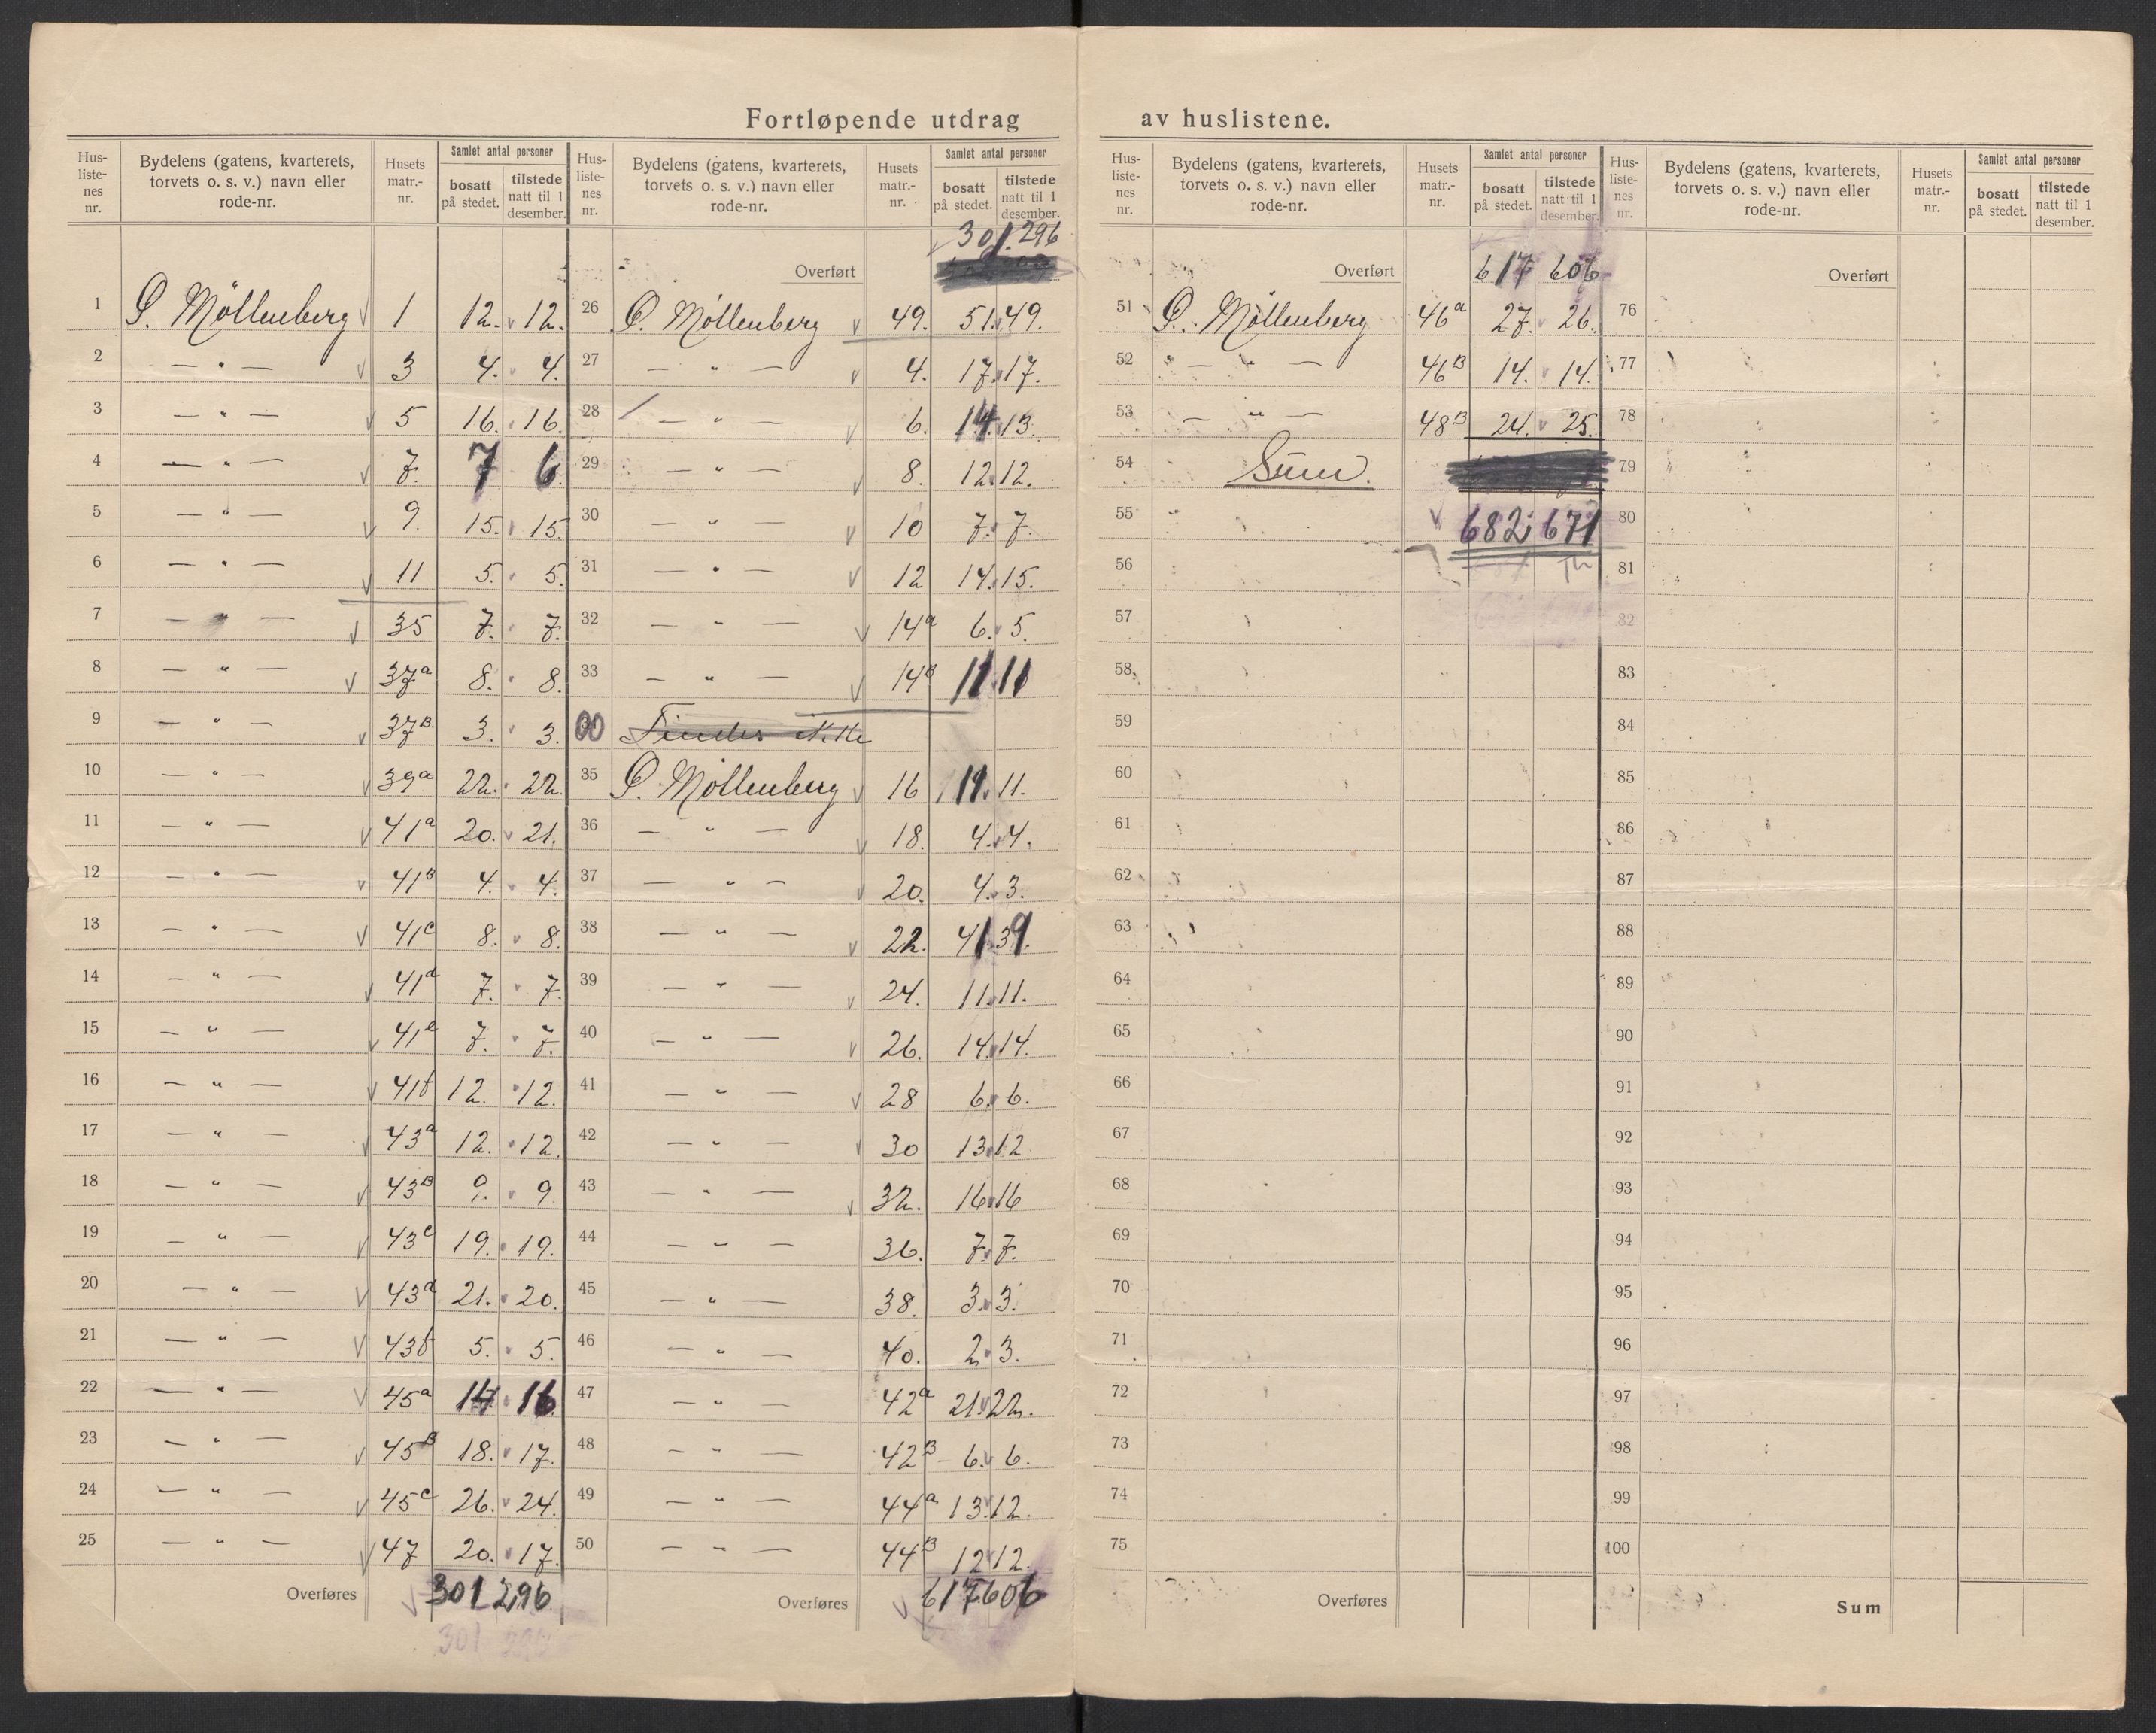 Fortløpende utdrag av huslistene.
Hus-listenes nr. | Bydelens (gatens, kvarterets, torvets o. s. v.) navn eller rode-nr. | Husets matr.-nr. | Samlet antal personer: bosatt på stedet. | tilstede natt til 1 desember.
1 Ø. Möllenberg 1 12. 12.
2 — " — 3 4. 4.
3 — " — 5 16. 16.
4 — " — 7. 7 6
5 — " — 9. 15. 15.
6 — " — 11 5. 5.
7 — " — 35 7. 7.
8 — " — 37a 8. 8.
9 — " — 37B. 3. 3.
10 — " — 39a 22. 22.
11 — " — 41a 20. 21.
12 — " — 41B 4. 4.
13 — " — 41c 8. 8.
14 — " — 41d 7. 7.
15 — " — 41e 7. 7.
16 — " — 41f 12. 12.
17 — " — 43a 12. 12.
18 — " — 43B 9. 9.
19 — " — 43c 19. 19.
20 — " — 43d 21. 20.
21 — " — 43f 5. 5.
22 — " — 45a 14. 16
23 — " — 45B 18. 17.
24 — " — 45c 26. 24.
25 — " — 47 20. 17.
Overføres 301 296
301 296
Hus-listenes nr. | Bydelens (gatens, kvarterets, torvets o. s. v.) navn eller rode-nr. | Husets matr.-nr. | Samlet antal personer: bosatt på stedet. | tilstede natt til 1 desember.
301. 296
Overført
26 Ø. Möllenberg 49. 51. 49.
27 — " — 4. 17. 17.
28 — " — 6. 14. 13.
29 — " — 8. 12. 12.
30 — " — 10 7. 7.
31 — " — 12 14. 15.
32 — " — 14a 6. 5.
33 — " — 14B 11 11
35 Ø. Möllenberg 16 11. 11.
36 — " — 18. 4. 4.
37 — " — 20. 4. 3.
38 — " — 22. 41 39.
39 — " — 24. 11. 11.
40 — " — 26. 14. 14.
41 — " — 28 6. 6.
42 — " — 30 13. 12
43 — " — 32. 16 16
44 — " — 36. 7. 7.
45 — " — 38. 3. 3.
46 — " — 40. 2. 3.
47 — " — 42a 21. 22.
48 — " — 42B 6. 6.
49 — " — 44a 13. 12.
50 — " — 44B 12 12.
Overføres 617 606
Hus-listenes nr. | Bydelens (gatens, kvarterets, torvets o. s. v.) navn eller rode-nr. | Husets matr.-nr. | Samlet antal personer: bosatt på stedet. | tilstede natt til 1 desember.
Overført 617 606
51 Ø. Möllenberg 46a 27. 26.
52 " — " — 46B 14. 14.
53 — " — 48B 24. 25.
54 Sum.
55 682 671
56
57
58
59
60
61
62
63
64
65
66
67
68
69
70
71
72
73
74
75
Overføres
Hus-listenes nr. | Bydelens (gatens, kvarterets, torvets o. s. v.) navn eller rode-nr. | Husets matr.-nr. | Samlet antal personer: bosatt på stedet. | tilstede natt til 1 desember.
Overført
76
77
78
79
80
81
82
83
84
85
86
87
88
89
90
91
92
93
94
95
96
97
98
99
100
Sum